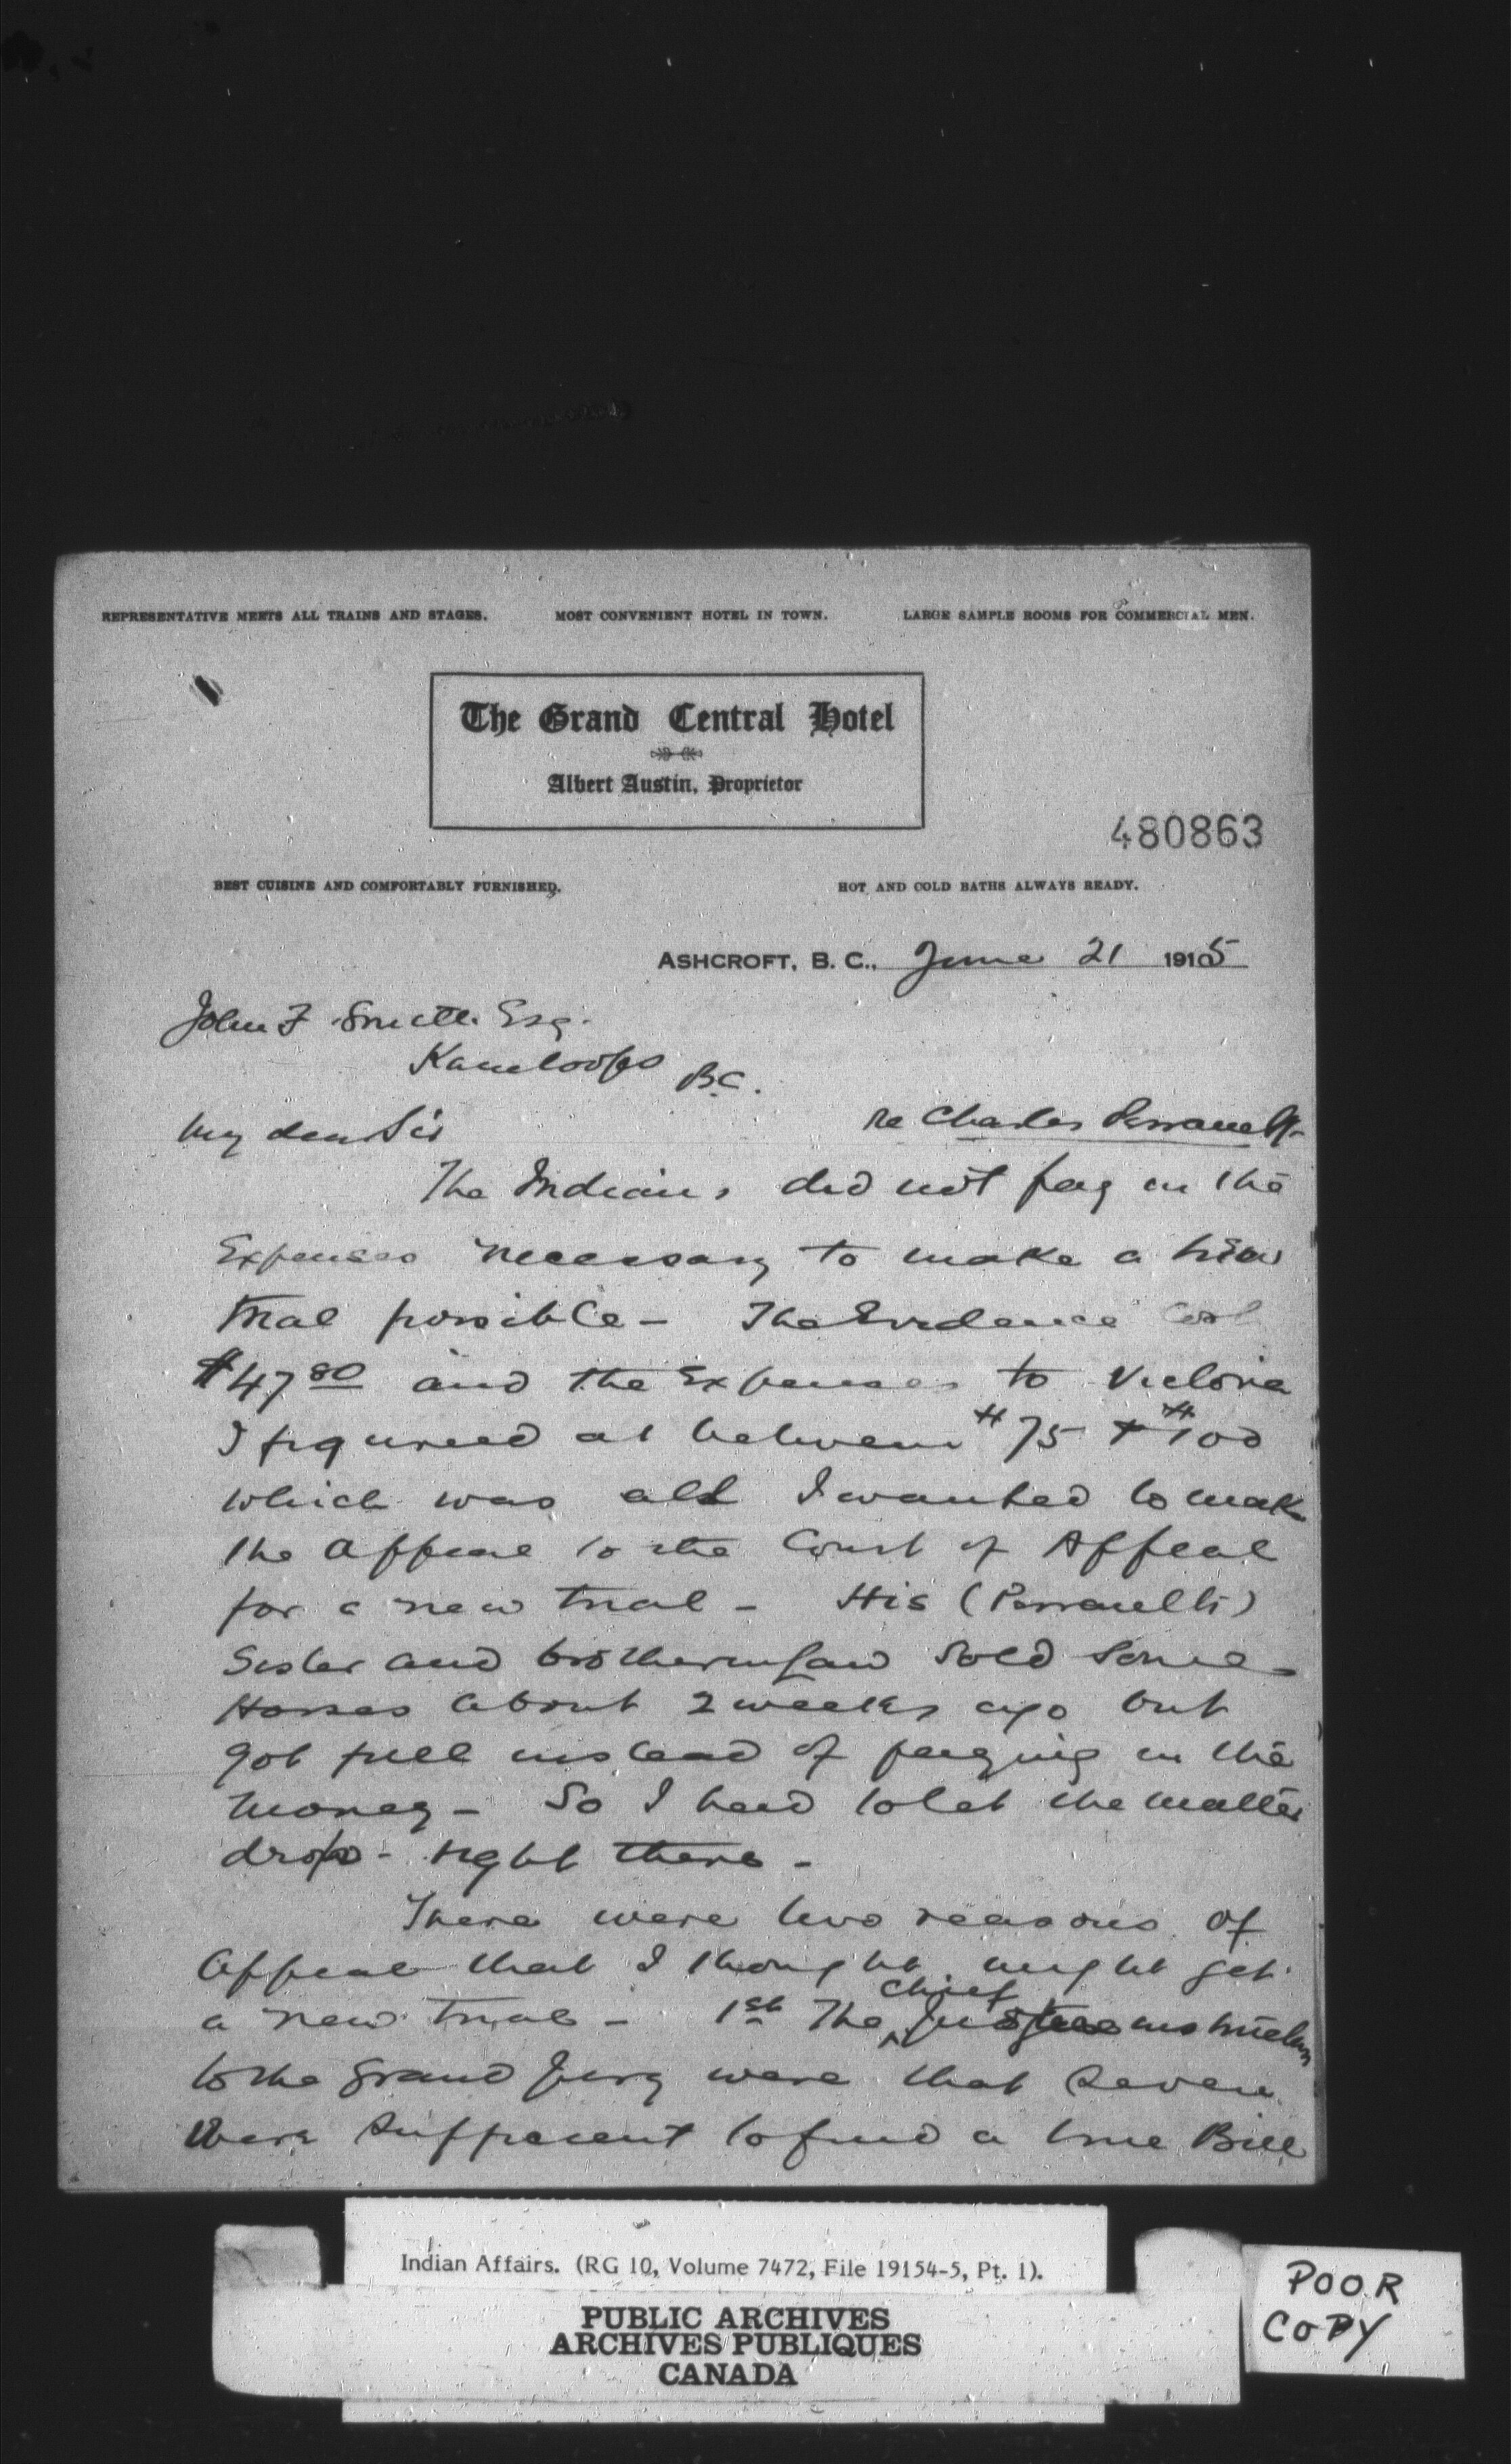 REPRESENTATIVE MEETS ALL TRAINS AND STAGES. MOST CONVENIENT HOTEL IN TOWN. LARGE SAMPLE ROOMS FOR COMMERCIAL MEN.
The Grand Central Hotel
Albert Austin, Proprietor
480863
BEST CUISINE AND COMFORTABLY FURNISHED. HOT AND COLD BATHS ALWAYS READY.
ASHCROFT, B. C., June 21 1915
John F. Smith Esq.
Kamloops B.C.
My dear Sir
re Charles
The Indians did not pay in the
Expenses necessary to make a new
trial possible - The Evidence cost
$47 80 and the Expenses to Victoria
I figured at between $75 + $100
which was all I wanted to make
the appeal to the Court of Appeal
for a new trial - His (Perranelli)
Sister and brotherinlaw sold some
Horses about 2 weeks ago but
got full instead of paying in the
money - So I had to let the matter
drop - right there -
There were two reasons of
appeal that I thought might get
a new trial - 1st The Chief Justice instruction
to the Grand Jury were that seven
were sufficient to find a true Bill
Indian Affairs. (RG 10, Volume 7472, File 19154-5, Pt. 1).
PUBLIC ARCHIVES
ARCHIVES PUBLIQUES
CANADA
POOR
COPY